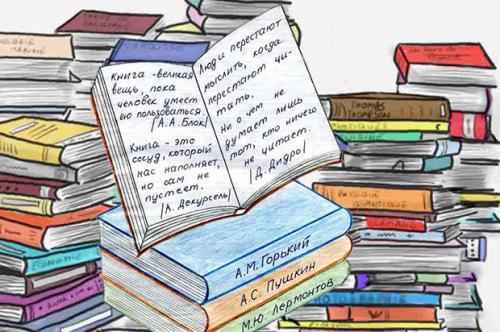 Книга - великая
вещь, пока
человек умеет
ею пользоваться.
|А.А.Блок|
Книга - это
сосуд, который
нас наполняет,
но сам не
пустеет.
|А. Декурсель|
Люди перестают
мыслить, когда
перестают чи-
тать,
ни о чем не
думает лишь
тот, кто ничего
не читает.
|Д. Дидро|
А.М.Горький
А.С. Пушкин
М.Ю. Лермонтов
LAROUSSE
THOMAS
THOMPSON
PHYSIQUE
QUANTIQUE
ECONOMIE